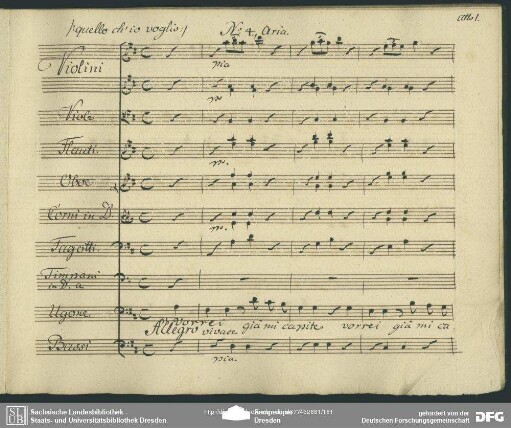 Atto I.
/:quello ch'io voglio:/ No 4, Aria.
Violini
pia
po
Viole
Flauti.
po.
Oboe
Corni in D
po.
Fagotti.
Timpani
in D. a
Ugone
vorrei già mi capite vorrei già mi ca
Allegro vivace
Bassi
pia.
Sächsische Landesbibliothek
Staats- und Universitätsbibliothek Dresden
Dresden
gefördert von der
Deutschen Forschungsgemeinschaft
DFG